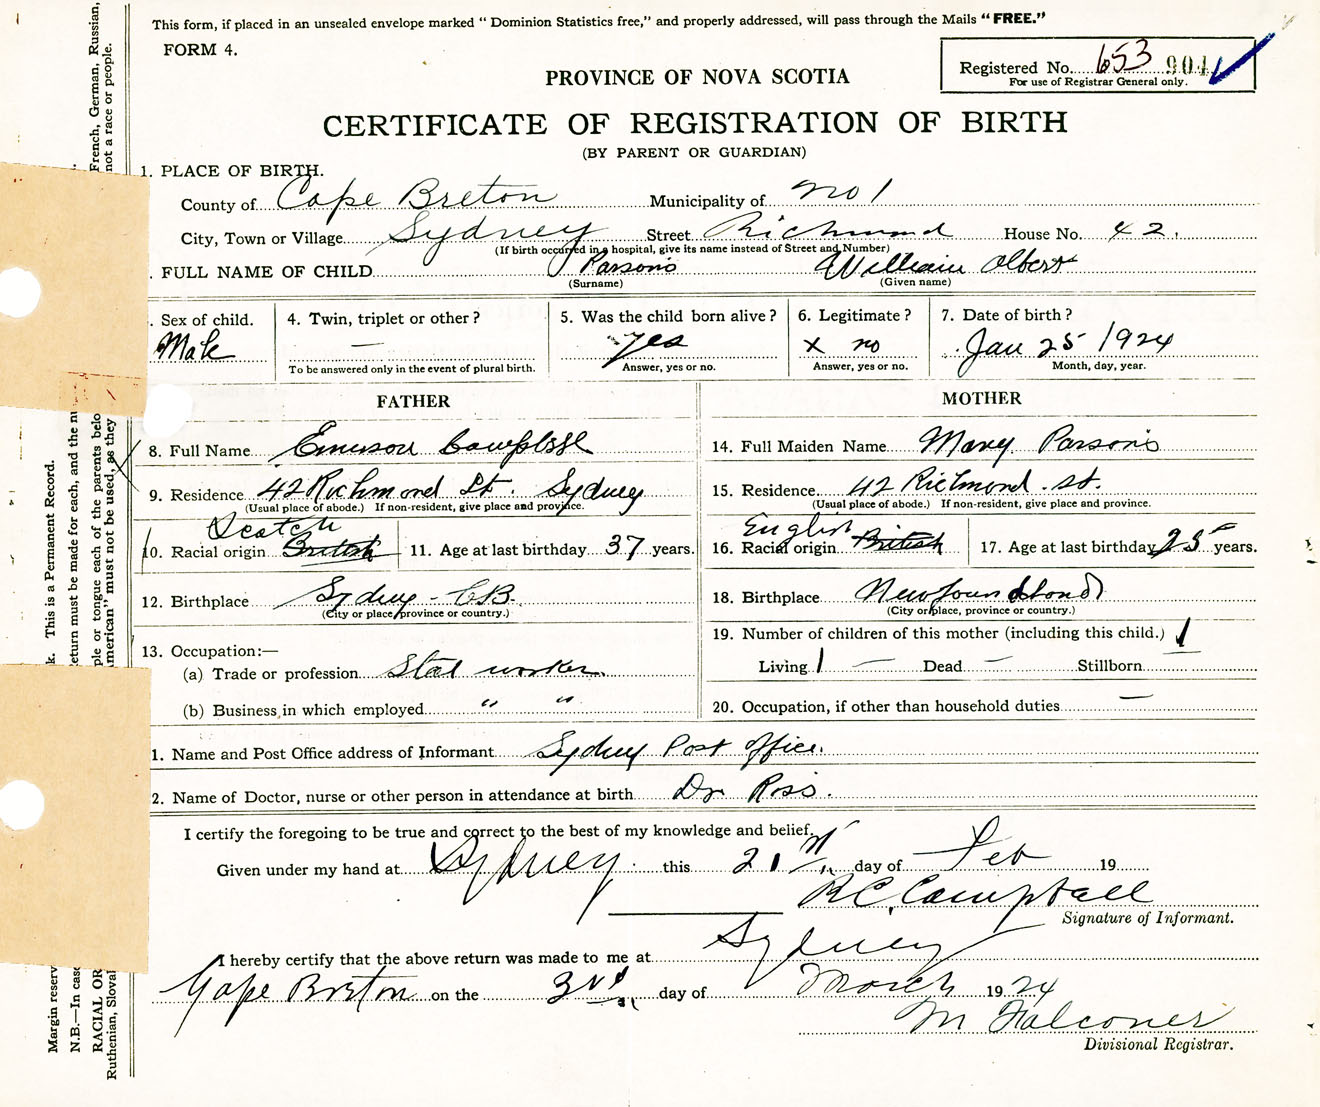 This form, if placed in an unsealed envelope marked "Dominion Statistics free," and properly addressed, will pass through the Mails "FREE."
FORM 4.
Registered No. 653 904
For use of Registrar General only.
PROVINCE OF NOVA SCOTIA
CERTIFICATE OF REGISTRATION OF BIRTH
(BY PARENT OR GUARDIAN)
1. PLACE OF BIRTH.
County of Cape Breton Municipality of No 1
City, Town or Village Sydney Street Richmond House No. 42.
(If birth occurred in a hospital, give its name instead of Street and Number)
. FULL NAME OF CHILD Parsons William Albert
(Surname) (Given name)
. Sex of child. Male
4. Twin, triplet or other? —
To be answered only in the event of plural birth.
5. Was the child born alive? yes
Answer, yes or no.
6. Legitimate? x no
Answer, yes or no.
7. Date of birth? Jan 25 1924
Month, day, year.
FATHER
8. Full Name Emerson Campbell
9. Residence 42 Richmond St. Sydney
(Usual place of abode.) If non-resident, give place and province.
Scotch
10. Racial origin British 11. Age at last birthday 37 years.
12. Birthplace Sydney - C.B.
(City or place, province or country.)
13. Occupation:—
(a) Trade or profession Steel worker.
(b) Business in which employed " "
MOTHER
14. Full Maiden Name Mary Parsons
15. Residence 42 Richmond St.
(Usual place of abode.) If non-resident, give place and province.
English
16. Racial origin British 17. Age at last birthday 25 years.
18. Birthplace Newfoundland
(City or place, province or country.)
19. Number of children of this mother (including this child.) 1
Living 1 — Dead — Stillborn
20. Occupation, if other than household duties —
1. Name and Post Office address of Informant Sydney Post Office.
2. Name of Doctor, nurse or other person in attendance at birth Dr Ross.
I certify the foregoing to be true and correct to the best of my knowledge and belief,
Given under my hand at Sydney this 21st day of Feb 19
R C Campbell
Signature of Informant.
I hereby certify that the above return was made to me at Sydney
Cape Breton on the 3rd day of March 1924
M Falconer
Divisional Registrar.
French, German, Russian,
not a race or people.
k. This is a Permanent Record.
Return must be made for each, and the nu
ple or tongue each of the parents belo
merican" must not be used, as they
Margin reserv
N.B.—In case
RACIAL OR
Ruthenian, Slova